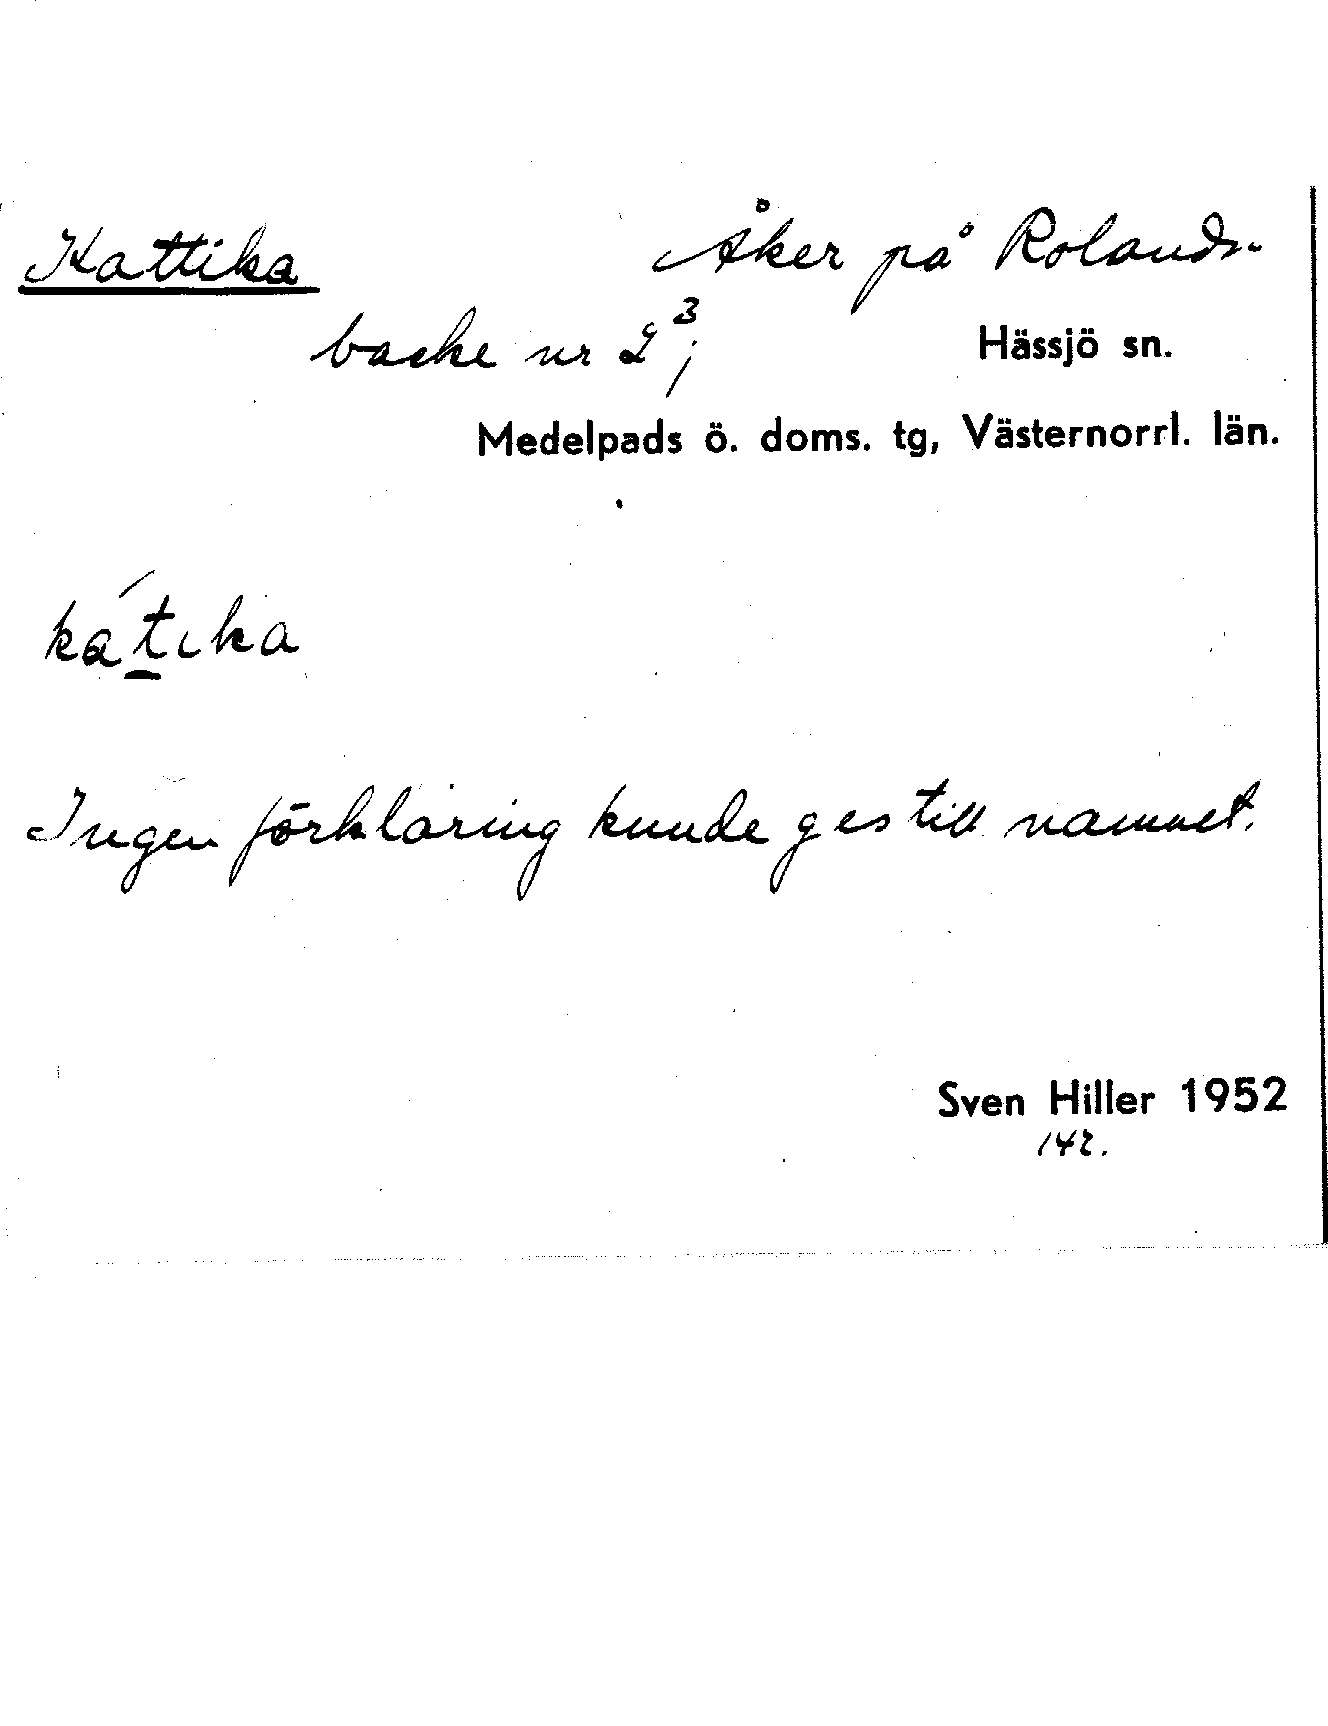 Kattika Åker på Rolands-
backe nr 2³; Hässjö sn.
Medelpads ö. doms. tg, Västernorrl. län.
ká̱tika
Ingen förklaring kunde ges till namnet.
Sven Hiller 1952
142.